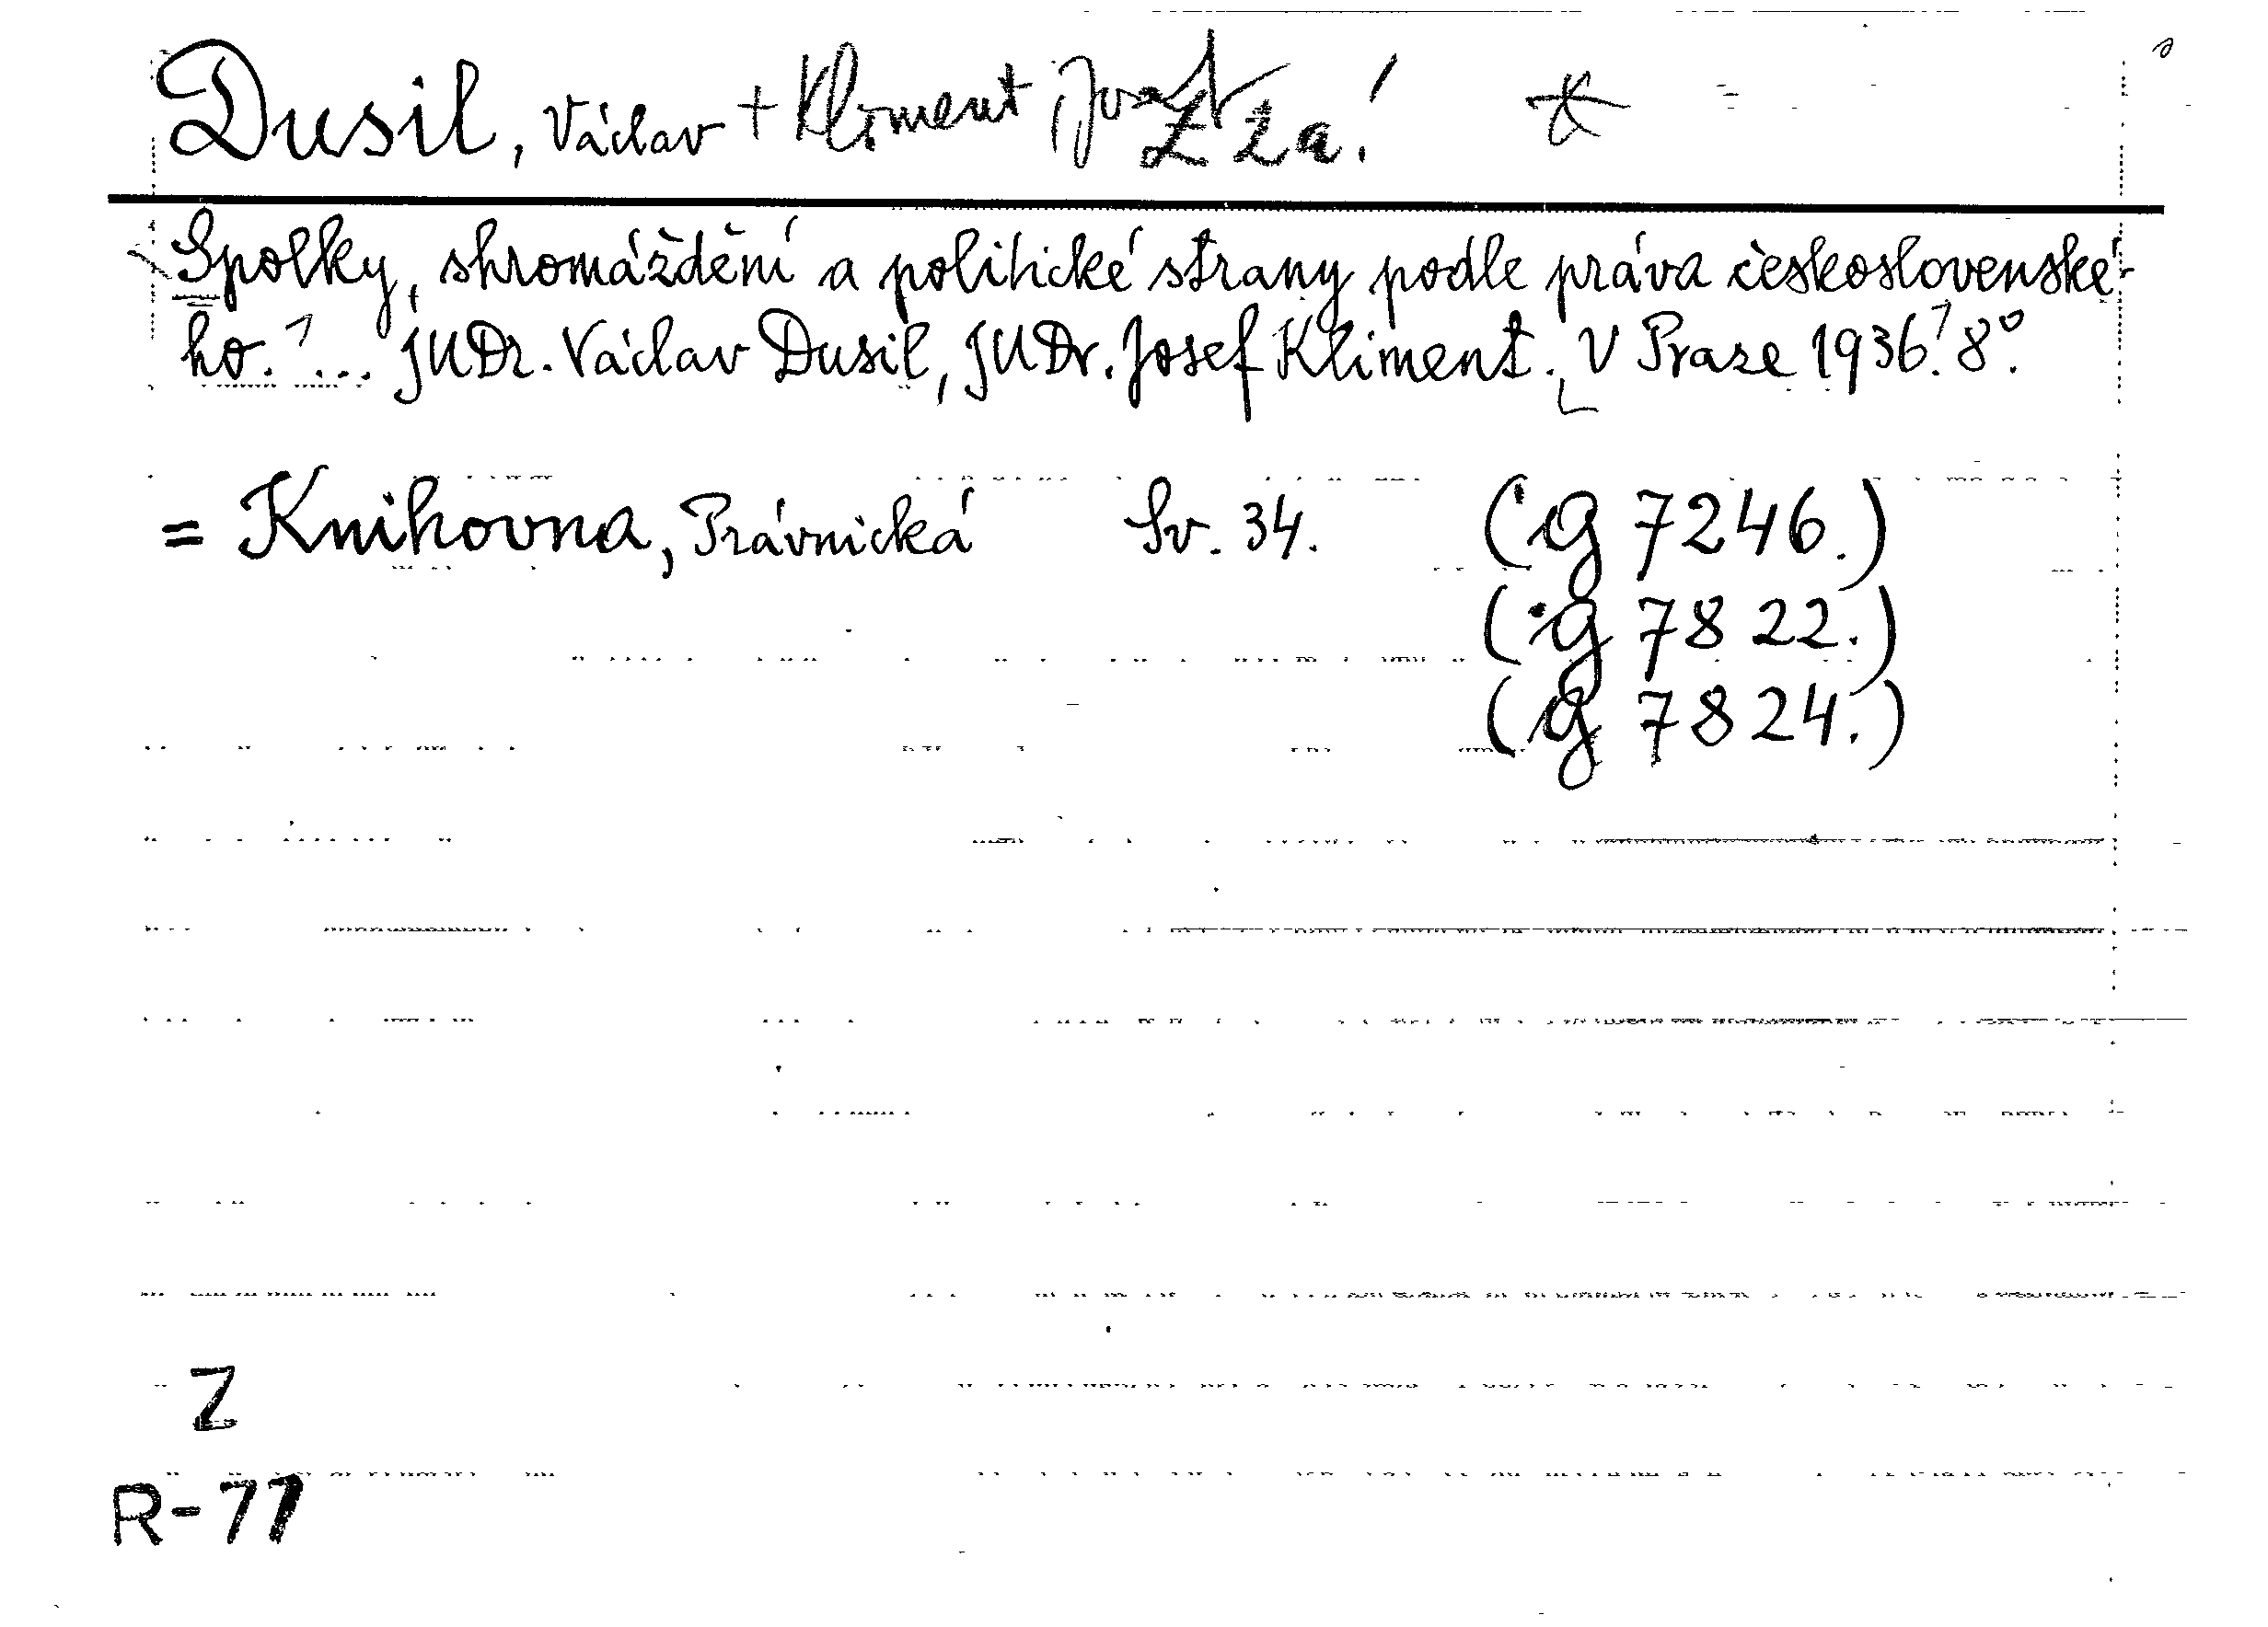 Dusil, Václav + Kliment, Josef Z 2a!
Spolky, shromáždění a politické strany podle práva československé-
ho. ... JUDr. Václav Dusil, JUDr. Josef Kliment. V Praze 1936. 8°.
= Knihovna, Právnická Sv. 34. (G 7246.)
(G 7822.)
(G 7824.)
Z
R-77